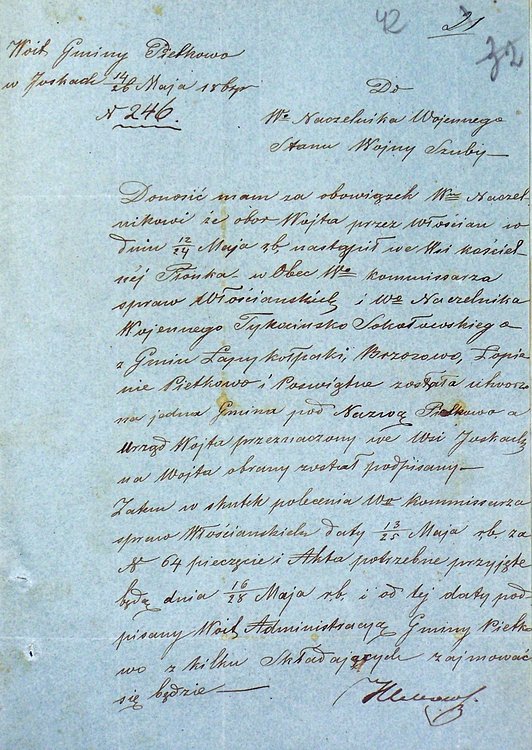 42 21
32
Woit Gminy Pietkowo
w Joskach 14/26 Maja 18
N 246.
Do
Wo Naczelnika Wojennego
Stanu Wojny Szuby
Donosić mam za obowiązek Wmu Naczel-
nikowi że obor Wojta przez Włościan w
dniu 12/24 Maja r.b. nastąpił we Wsi kościel-
néj Płonka w Obec Wo kommissarza
spraw Włościanskich i Wo Naczelnika
Wojennego Tykocinsko Sokołowskiego a
z Gmin Łapy Brzozowo, Łopie
nie Pietkowo i Poswiętne została utworzo
na jedna Gmina pod Nazwą Pietkowo a
Urząd Wojta przeznaczony we Wsi Joskach
na Wojta obrany został podpisany
Zatem w skutek polecenia Wo kommissarza
spraw Włościanskich daty 13/25 Maja r.b. za
N 64 pieczęcie i Akta potrzebne przyjęte
będą dnia 16/28 Maja r.b. i od tej daty pod
pisany Woit Administracyą Gminy Pietk
wo z kilku Składających zajmować
się będzie